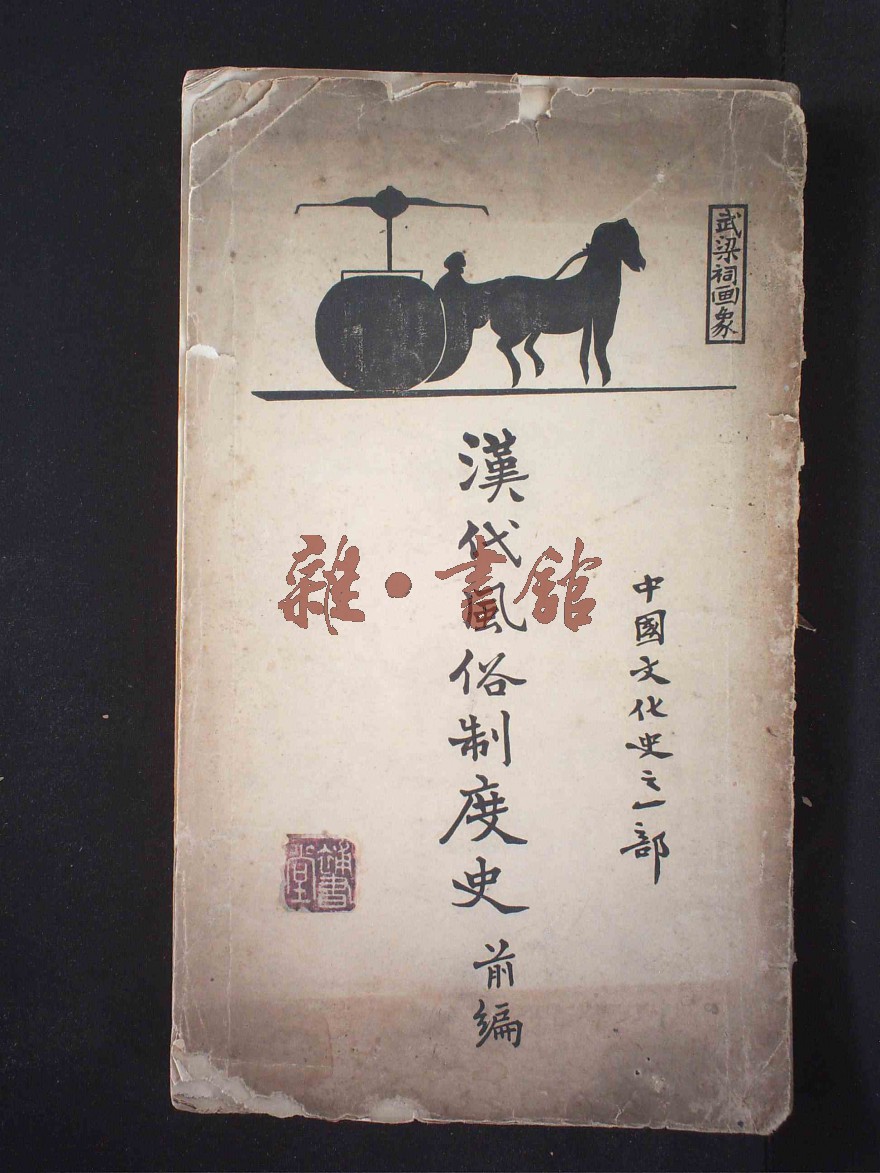 武梁祠画象
中國文化史之一部
漢代風俗制度史 前編
雜·書館